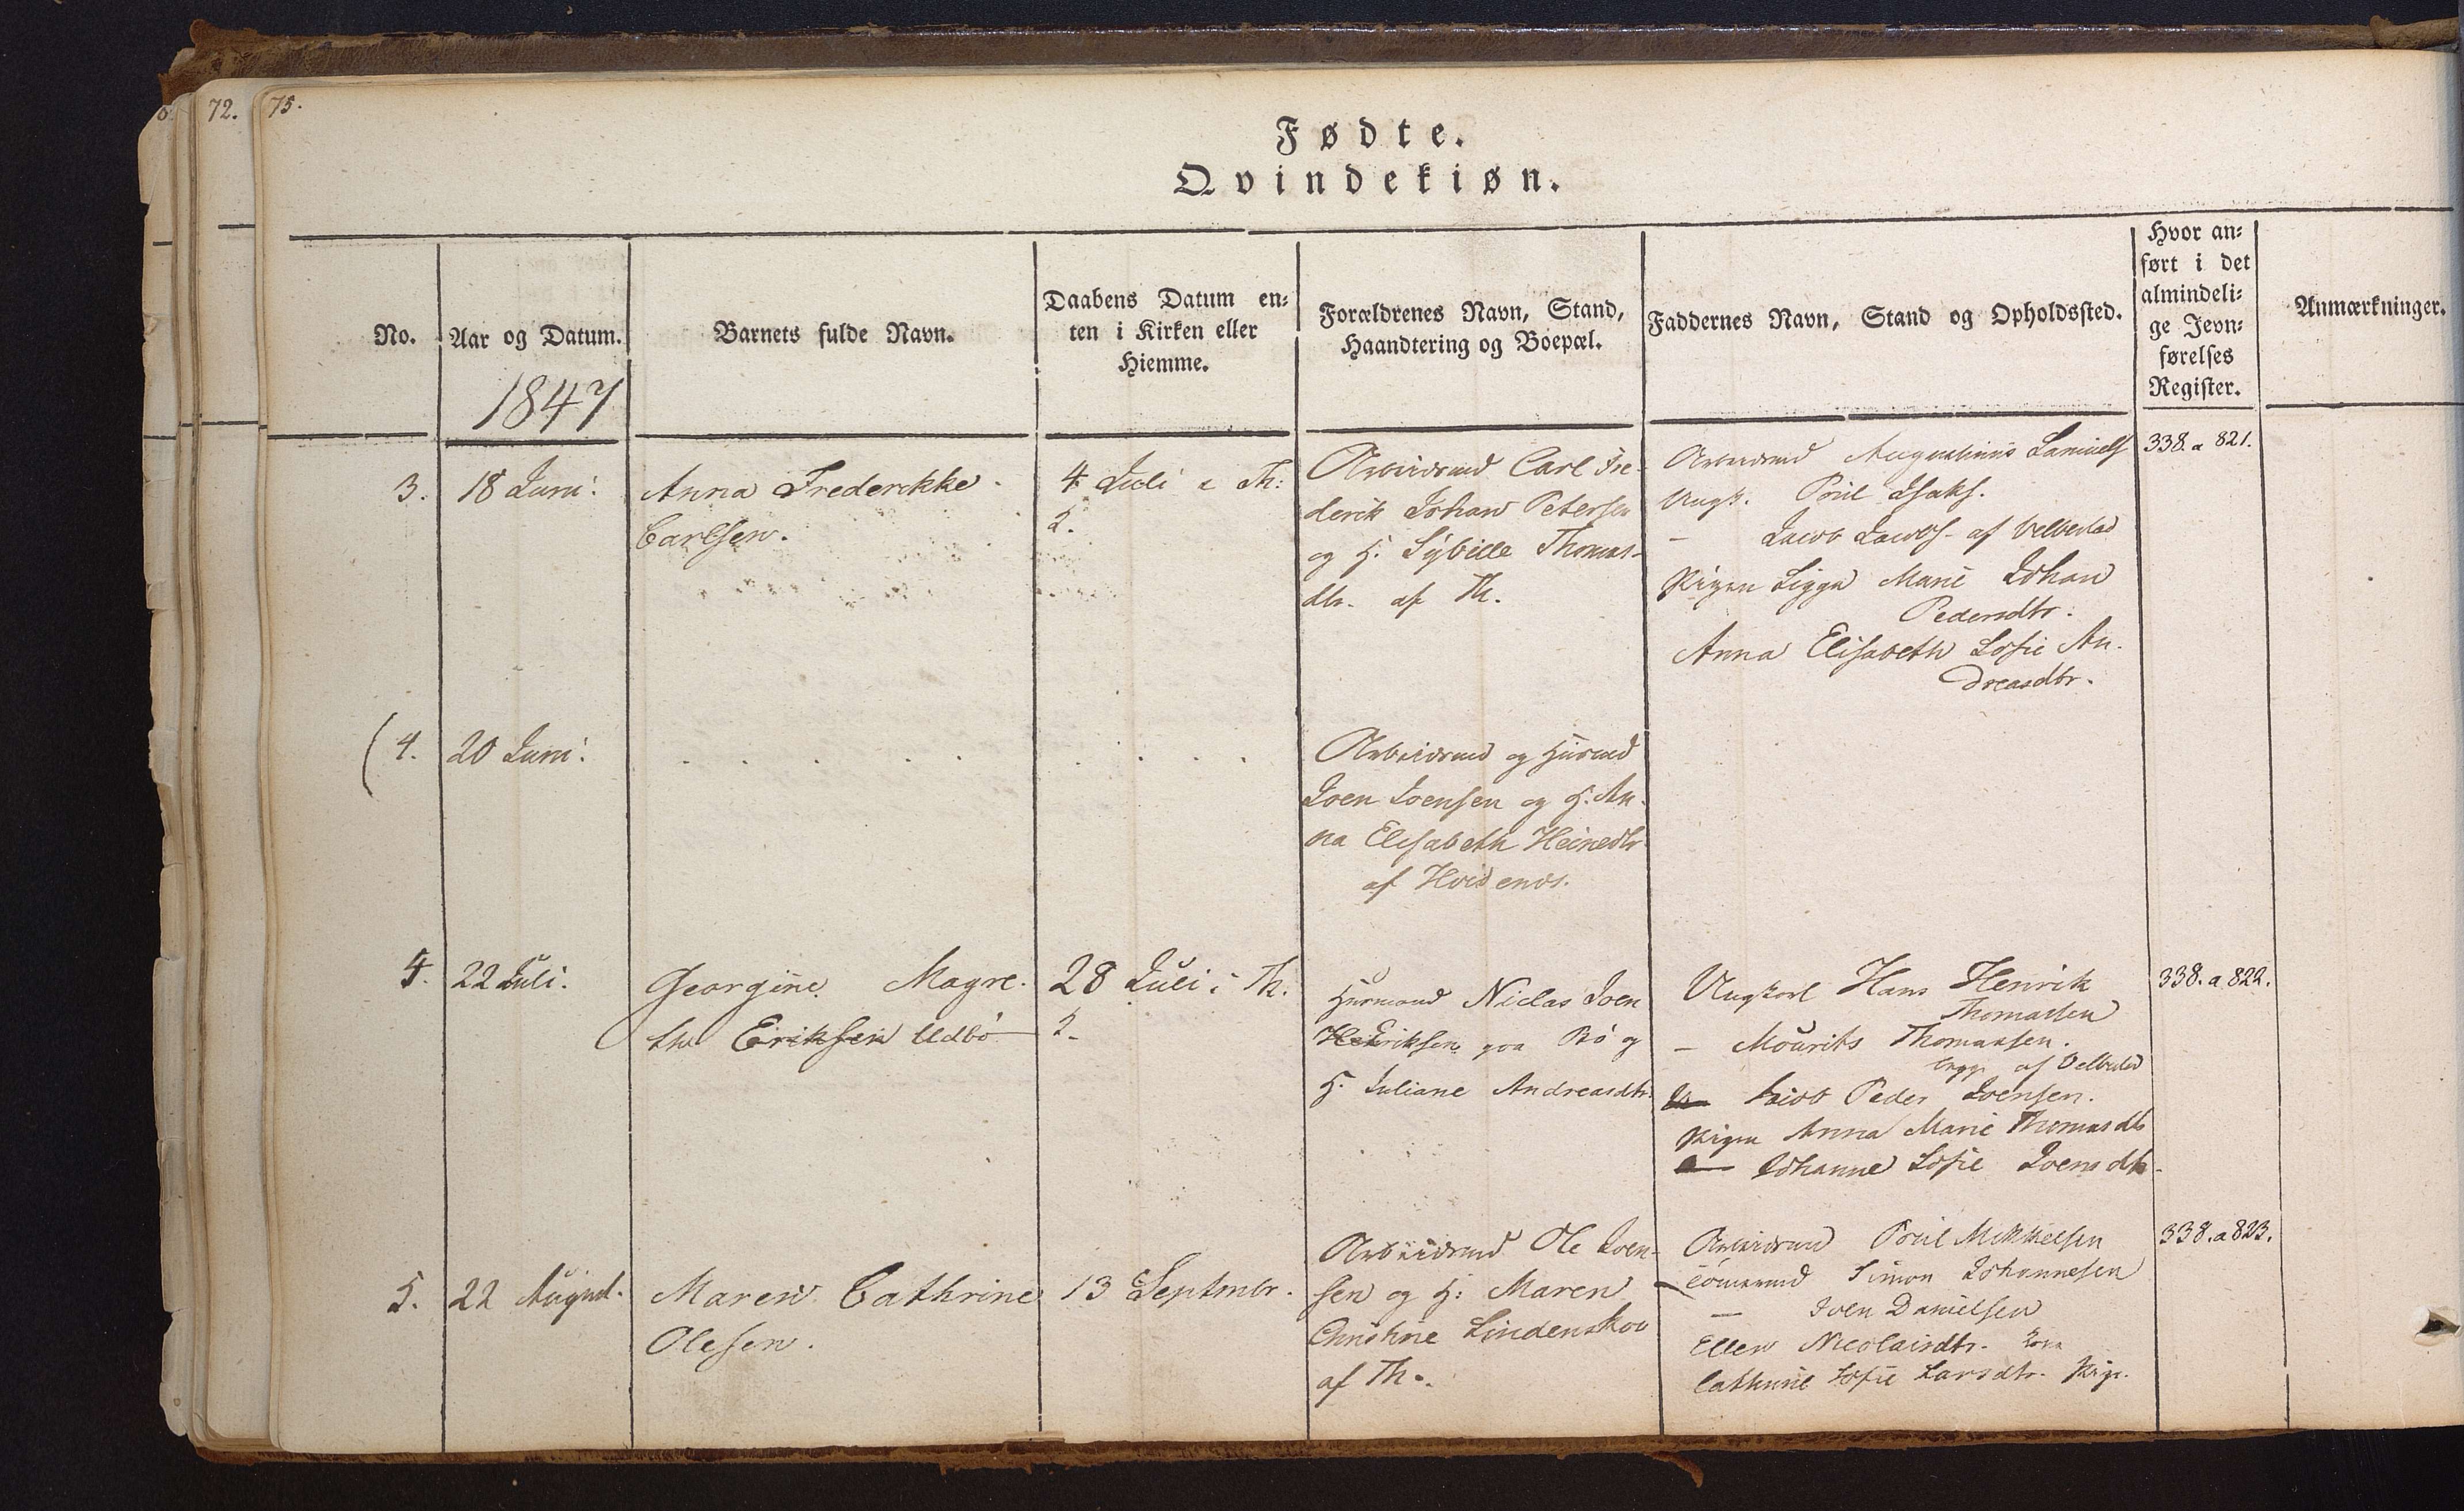 72. 75.
Fødte.
Qvindekiøn.
No.
Aar og Datum.
1847
Barnets fulde Navn.
Daabens Datum en=
ten i Kirken eller
Hiemme.
Forældrenes Navn, Stand,
Haandtering og Boepæl.
Faddernes Navn, Stand og Opholdssted.
Hvor an=
ført i det
almindeli=
ge Jevn=
førelses
Register.
Anmærkninger.
3.
18 Juni.
Anna Frederikke
Carlsen.
4 Juli i Th:
K.
Arbeidsmd Carl Fre-
derik Johan Petersen
og H. Sybille Thomas-
dtr. af Th.
Arbeidsmd Augustinus Samuels
Ungk. Poul Isaks.
- Jacob Jacobs. af Velbestad
Pigen Sigga Marie Johan
Pedersdtr.
Anna Elisabeth Sofie An-
dreasdtr.
338. a 821.
(4.
20 Juni.
Arbeidsmd og Huusmd
Joen Joensen og H. An-
na Elisabeth Heinedtr
af Hvidenæs.
4.
22 Juli.
Georgine Magre-
the Eriksen Udbø
28 Juli i Th.
K.
Huusmand Niclas Joen
Eriksen paa Bø og
H. Juliane Andreasdtr.
Ungkarl Hans Henrik
Thomassen
- Mourits Thomassen.
begge af Velbestad
Jacob Peder Joensen.
Pigen Anna Marie Thomasdtr
Johanne Sofie Joensdtr.
338. a 822.
5.
22 August.
Maren Cathrine
Olesen.
13 Septmbr.
Arbeidsmd Ole Joen-
sen og H: Maren
Christine Lindenskov
af Th.
Arbeidsmd Poul Mikkelsen
Tömermd Simon Johannesen
- Joen Danielsen
Ellen Nicolaisdtr. Kone
Cathrine Sofie Larsdtr. Pige.
338. a 823.